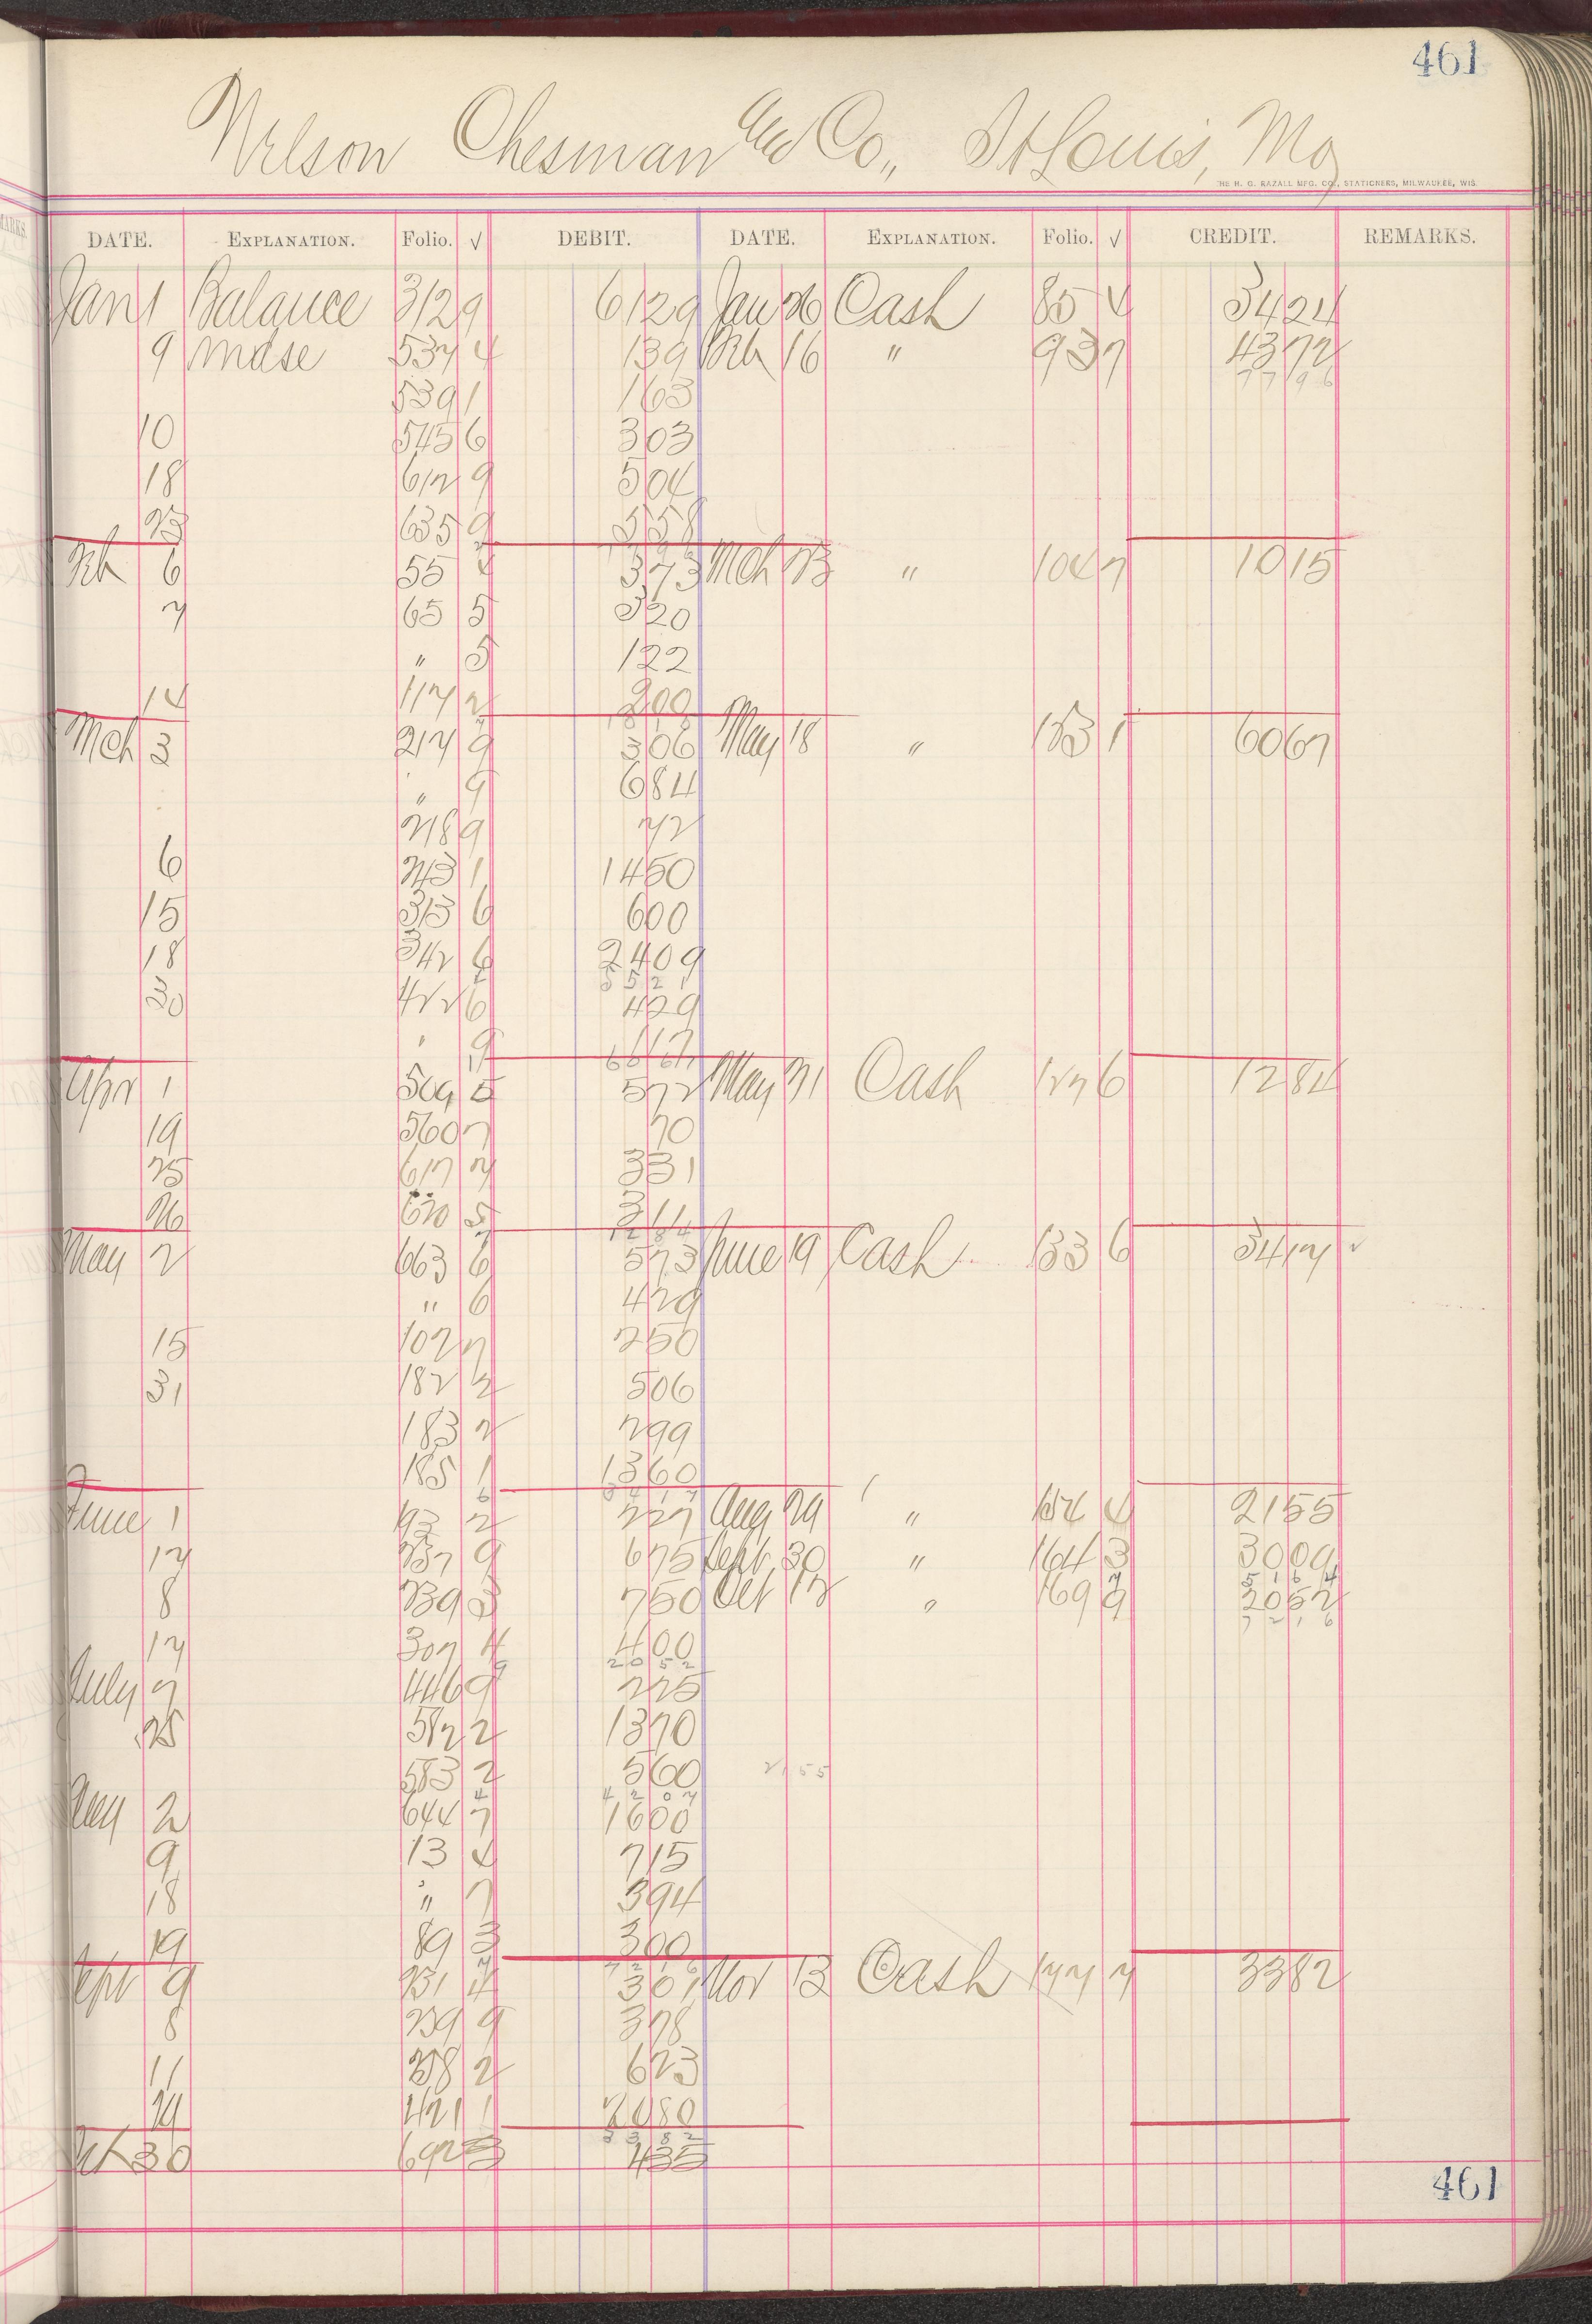 461
Nelson Chesman and Co., St Louis, Mo
THE H. G. RAZALL MFG. CO., STATIONERS, MILWAUKEE, WIS.
DATE. EXPLANATION. Folio. √ DEBIT. DATE. EXPLANATION. Folio. √ CREDIT. REMARKS.
Jan 1 Balance 312 9 61 29 Jan 26 Cash 85 4 34 24
9 Mdse 537 4 1 39 Feb 16 " 93 7 43 72
77 96
539 1 1 63
10 545 6 3 03
18 612 9 5 04
23 635 9 5 58
Feb 6 55 4 3 73 Mch 23 " 104 7 10 15
7 65 5 3 20
" 5 1 22
14 117 2 2 00
Mch 3 217 9 3 06 May 18 " 123 1 60 67
" 9 6 84
218 9 72
6 243 1 14 50
15 313 6 6 00
18 342 6 24 09
55 21
30 422 6 4 29
" 9 1 17
66 67
Apr 1 509 5 5 72 May 31 Cash 127 6 12 84
19 560 7 70
25 617 7 3 31
26 620 5 3 11
12 84
May 2 663 6 5 73 June 19 Cash 133 6 34 17 ✓
" 6 4 29
15 102 7 2 50
31 182 2 5 06
183 2 2 99
185 1 13 60
34 17
June 1 193 2 2 27 Aug 29 " 154 4 21 55
17 237 9 6 75 Sept 30 " 164 3 30 09
51 64
8 239 3 7 50 Oct 12 " 169 9 20 52
72 16
17 307 4 4 00
20 52
July 7 446 9 2 25
25 582 2 13 70
583 2 5 60 21 55
42 07
Aug 2 644 7 16 00
9 13 4 7 15
18 " 7 3 94
19 89 3 3 00
72 16
Sept 9 231 4 3 01 Nov 13 Cash 177 7 33 82
8 239 9 3 78
11 258 2 6 23
21 421 1 20 80
33 82
Oct 30 692 3 4 35
461